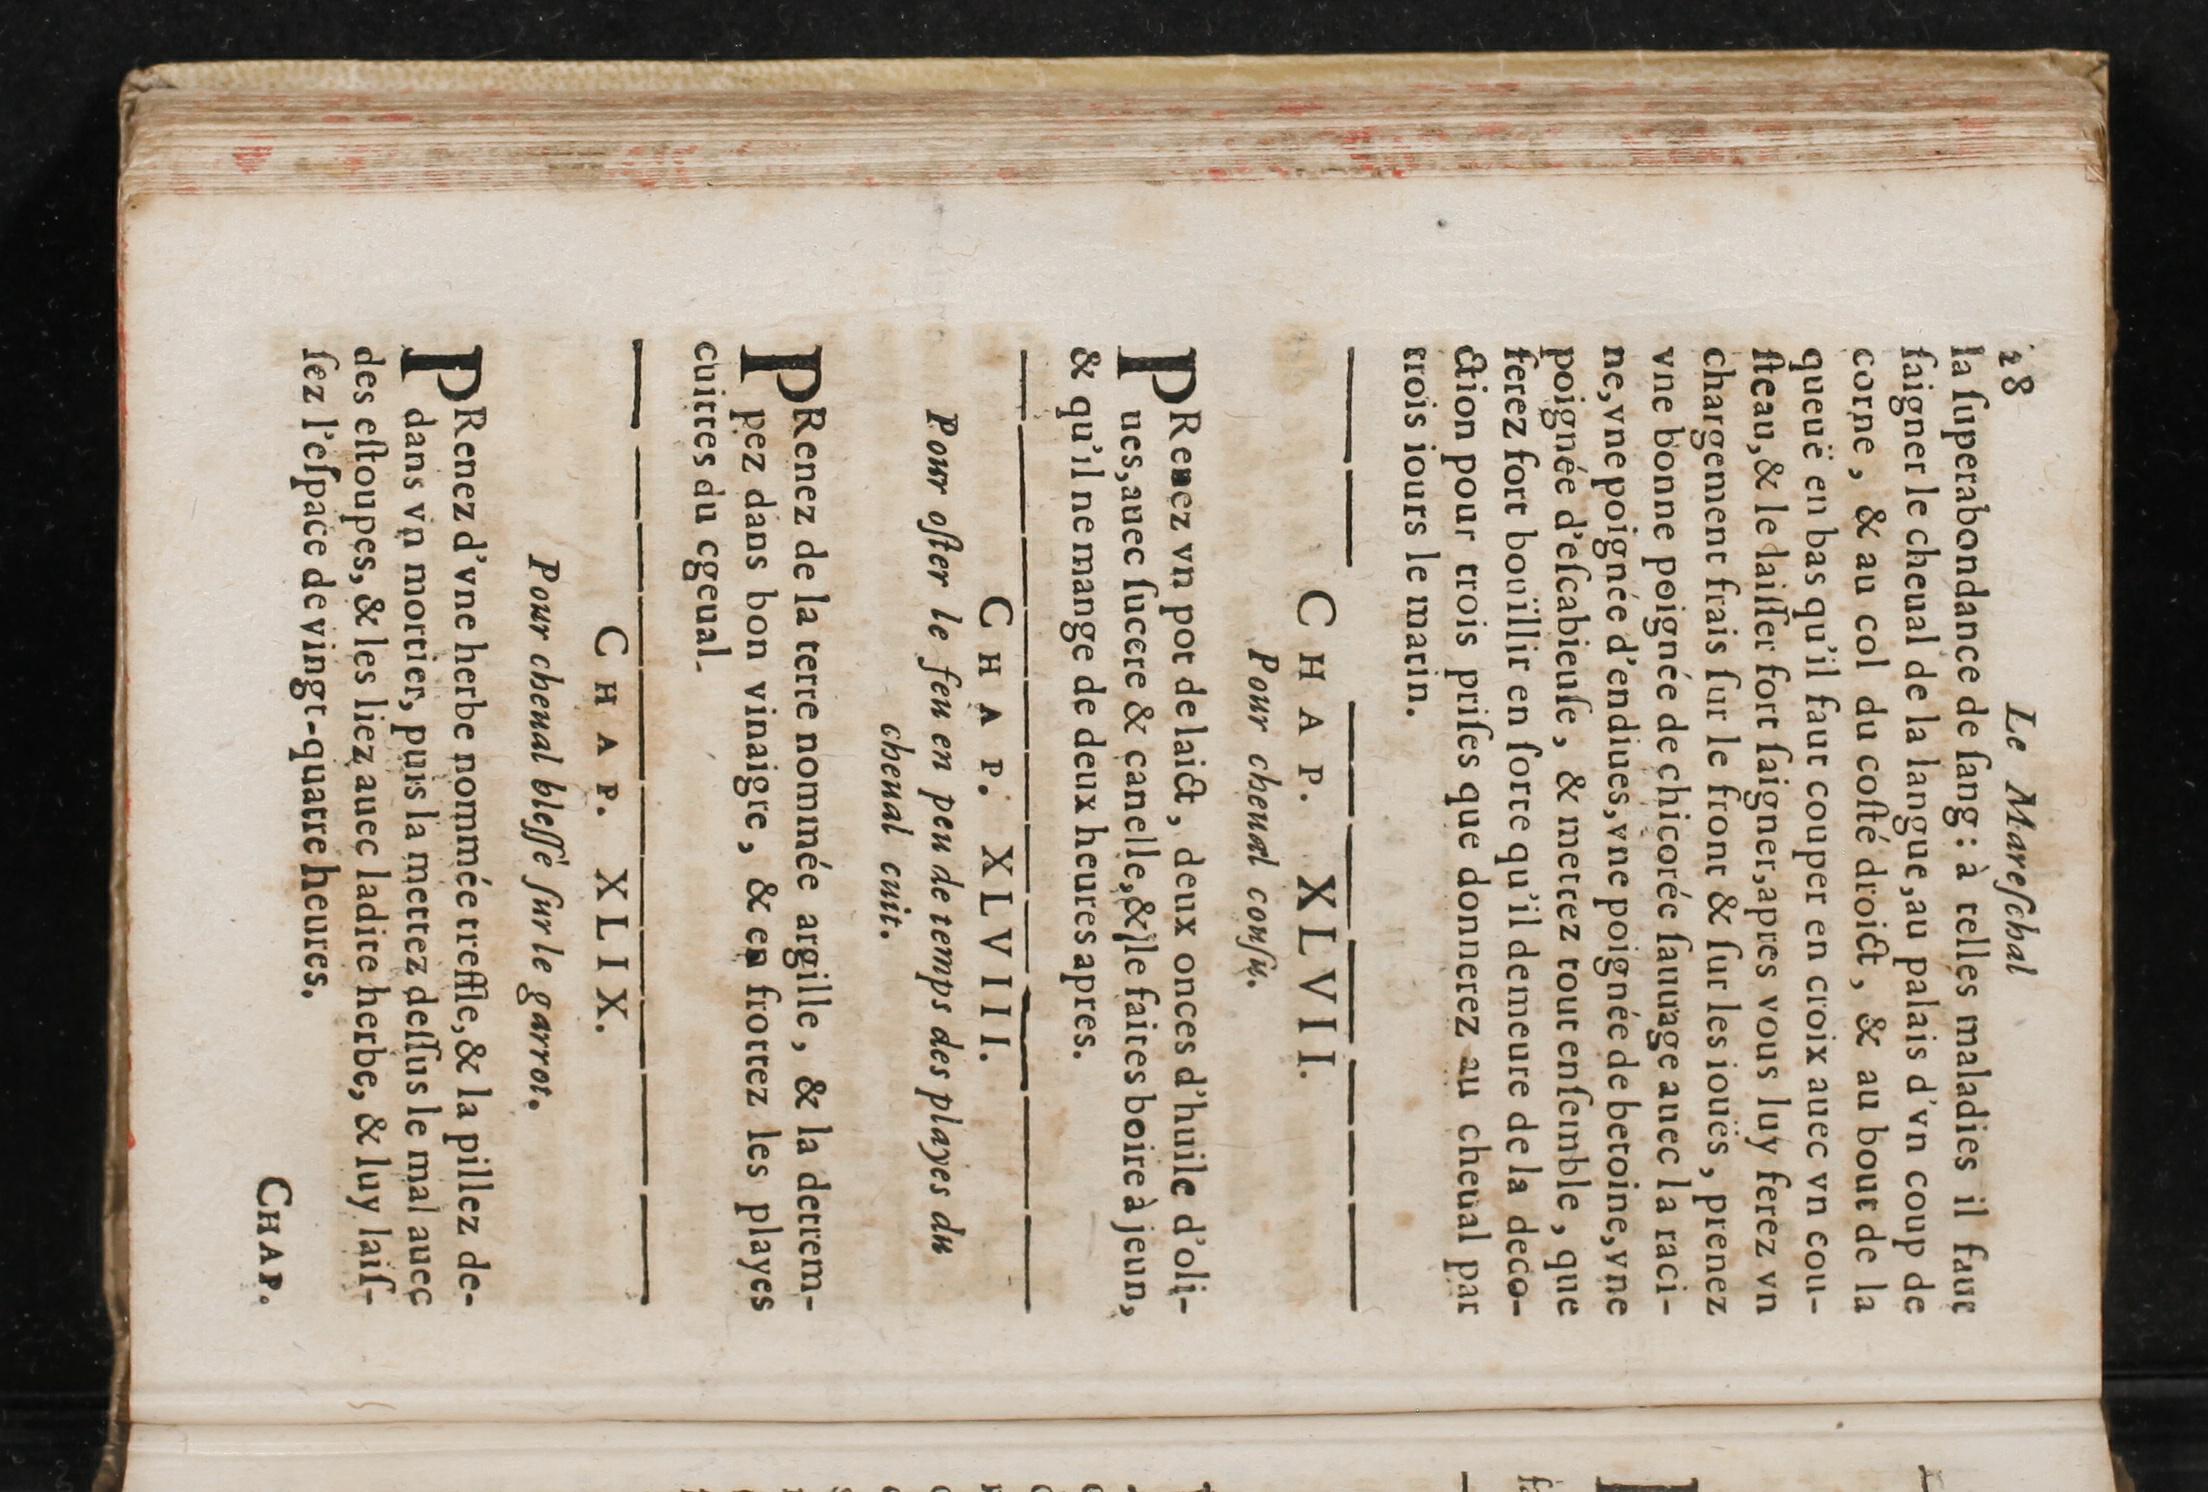 28 Le Mareſchal
la ſuperabondance de ſang : à telles maladies il faut
ſaigner le cheual de la langue, au palais d'vn coup de
corne, & au col du coſté droict, & au bout de la
queuë en bas qu'il faut couper en croix auec vn cou-
ſteau, & le laiſſer fort ſaigner, apres vous luy ferez vn
chargement frais ſur le front & ſur les iouës, prenez
vne bonne poignée de chicorée ſauuage auec la raci-
ne, vne poignée d'endiues, vne poignée de betoine, vne
poignée d'eſcabieuſe, & mettez tout enſemble, que
ferez fort boüillir en ſorte qu'il demeure de la deco-
ction pour trois priſes que donnerez au cheual par
trois iours le matin.
CHAP. XLVII.
Pour cheual conſu.
PRenez vn pot de laict, deux onces d'huile d'oli-
ues, auec ſucere & canelle, & le faites boire à jeun,
& qu'il ne mange de deux heures apres.
CHAP. XLVIII.
Pour oſter le feu en peu de temps des playes du
cheual cuit.
PRenez de la terre nommée argille, & la detrem-
pez dans bon vinaigre, & en frottez les playes
cuittes du cgeual.
CHAP. XLIX.
Pour cheual bleſſé ſur le garrot.
PRenez d'vne herbe nommée treffle, & la pillez de-
dans vn mortier, puis la mettez deſſus le mal auec
des eſtoupes, & les liez auec ladite herbe, & luy laiſ-
ſez l'eſpace de vingt-quatre heures.
CHAP.